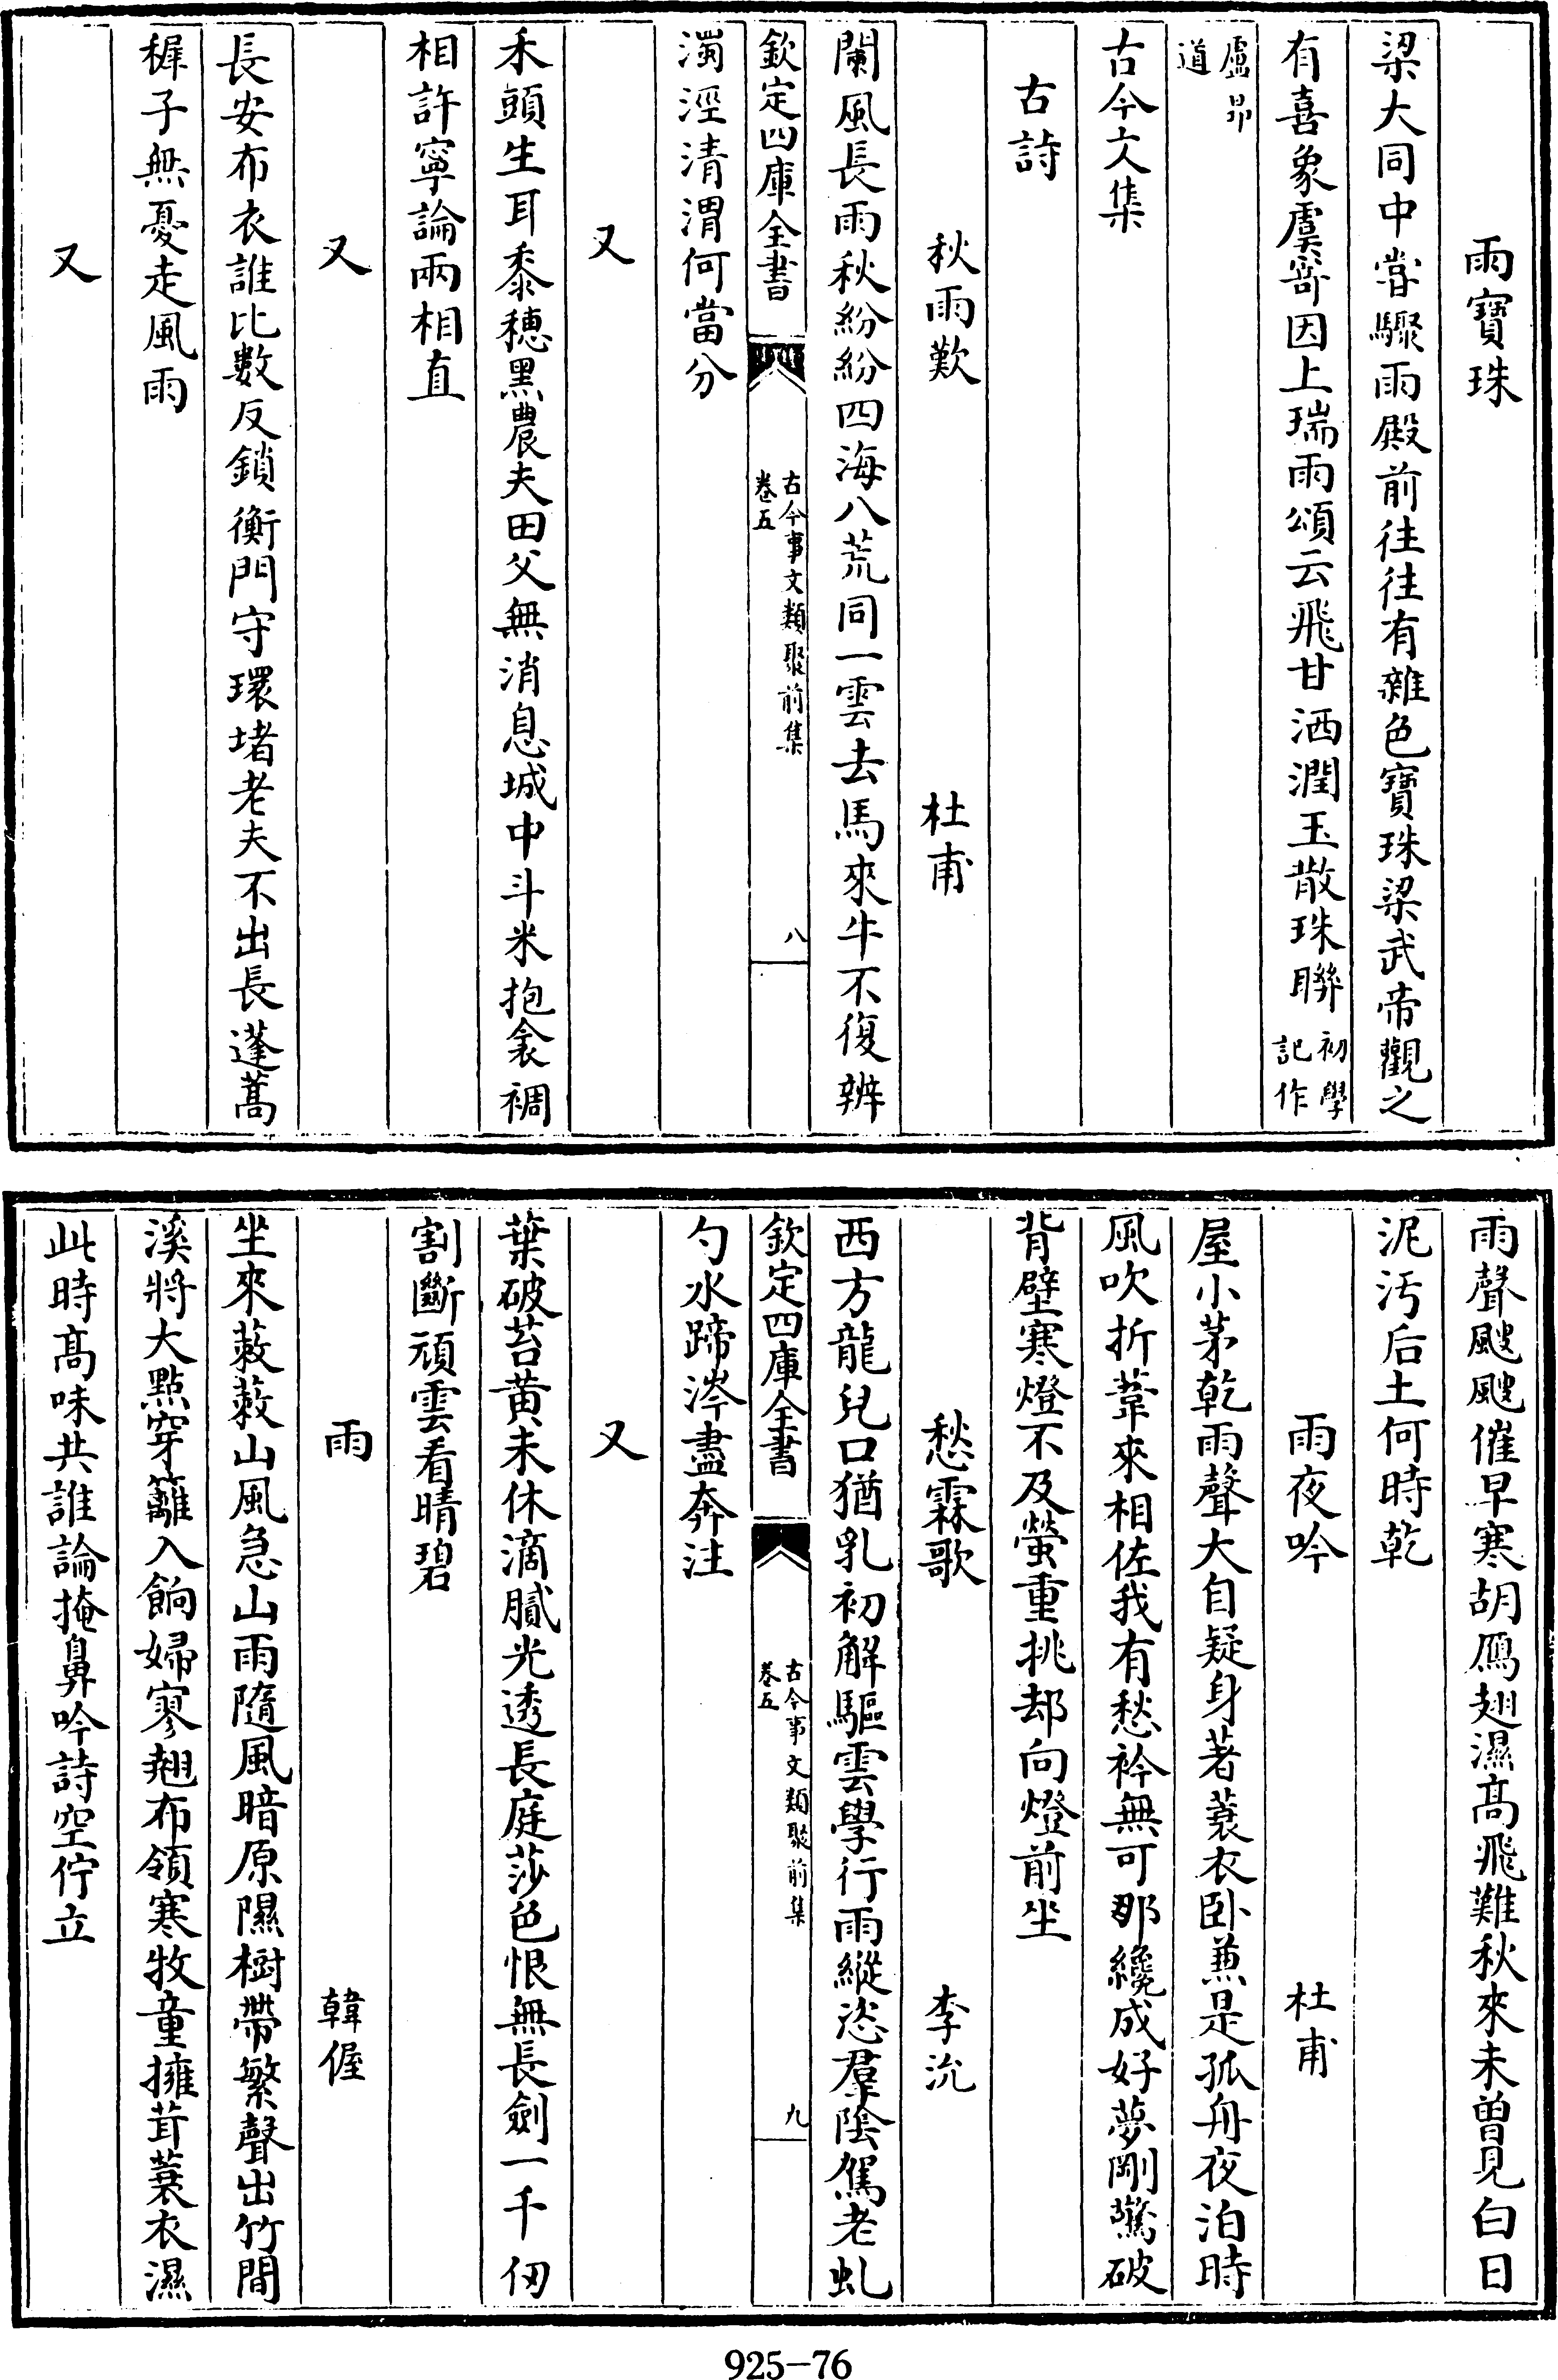 雨寶珠
梁大同中嘗驟雨殿前往往有雜色寶珠梁武帝觀之
有喜象虞寄因上瑞雨頌云飛甘洒潤玉散珠聯初學記作
盧昻道
古今文集
古詩
秋雨歎 杜甫
闌風長雨秋紛紛四海八荒同一雲去馬來牛不復辨
欽定四庫全書 古今事文類聚前集 卷五 八
濁涇清渭何當分
又
禾頭生耳黍穗黑農夫田父無消息城中斗米抱衾裯
相許寧論兩相直
又
長安布衣誰比數反鎖衡門守環堵老夫不出長蓬蒿
穉子無憂走風雨
又
雨聲颼颼催早寒胡鴈翅濕髙飛難秋來未曾見白日
泥汚后土何時乾
雨夜吟 杜甫
屋小茅乾雨聲大自疑身著蓑衣卧兼是孤舟夜泊時
風吹折葦來相佐我有愁衿無可那纔成好夢剛驚破
背壁寒燈不及螢重挑却向燈前坐
愁霖歌 李沇
西方龍兒口猶乳初解驅雲學行雨縱恣羣陰駕老虬
欽定四庫全書 古今事文類聚前集 卷五 九
勺水蹄涔盡奔注
又
葉破苔黄未休滴膩光透長庭莎色恨無長劍一千仞
割斷頑雲看晴碧
雨 韓偓
坐來蔌蔌山風急山雨隨風暗原隰樹帶繁聲出竹間
溪將大點穿籬入餉婦寥翹布領寒牧童擁茸蓑衣濕
此時髙味共誰論掩鼻吟詩空佇立
925-76